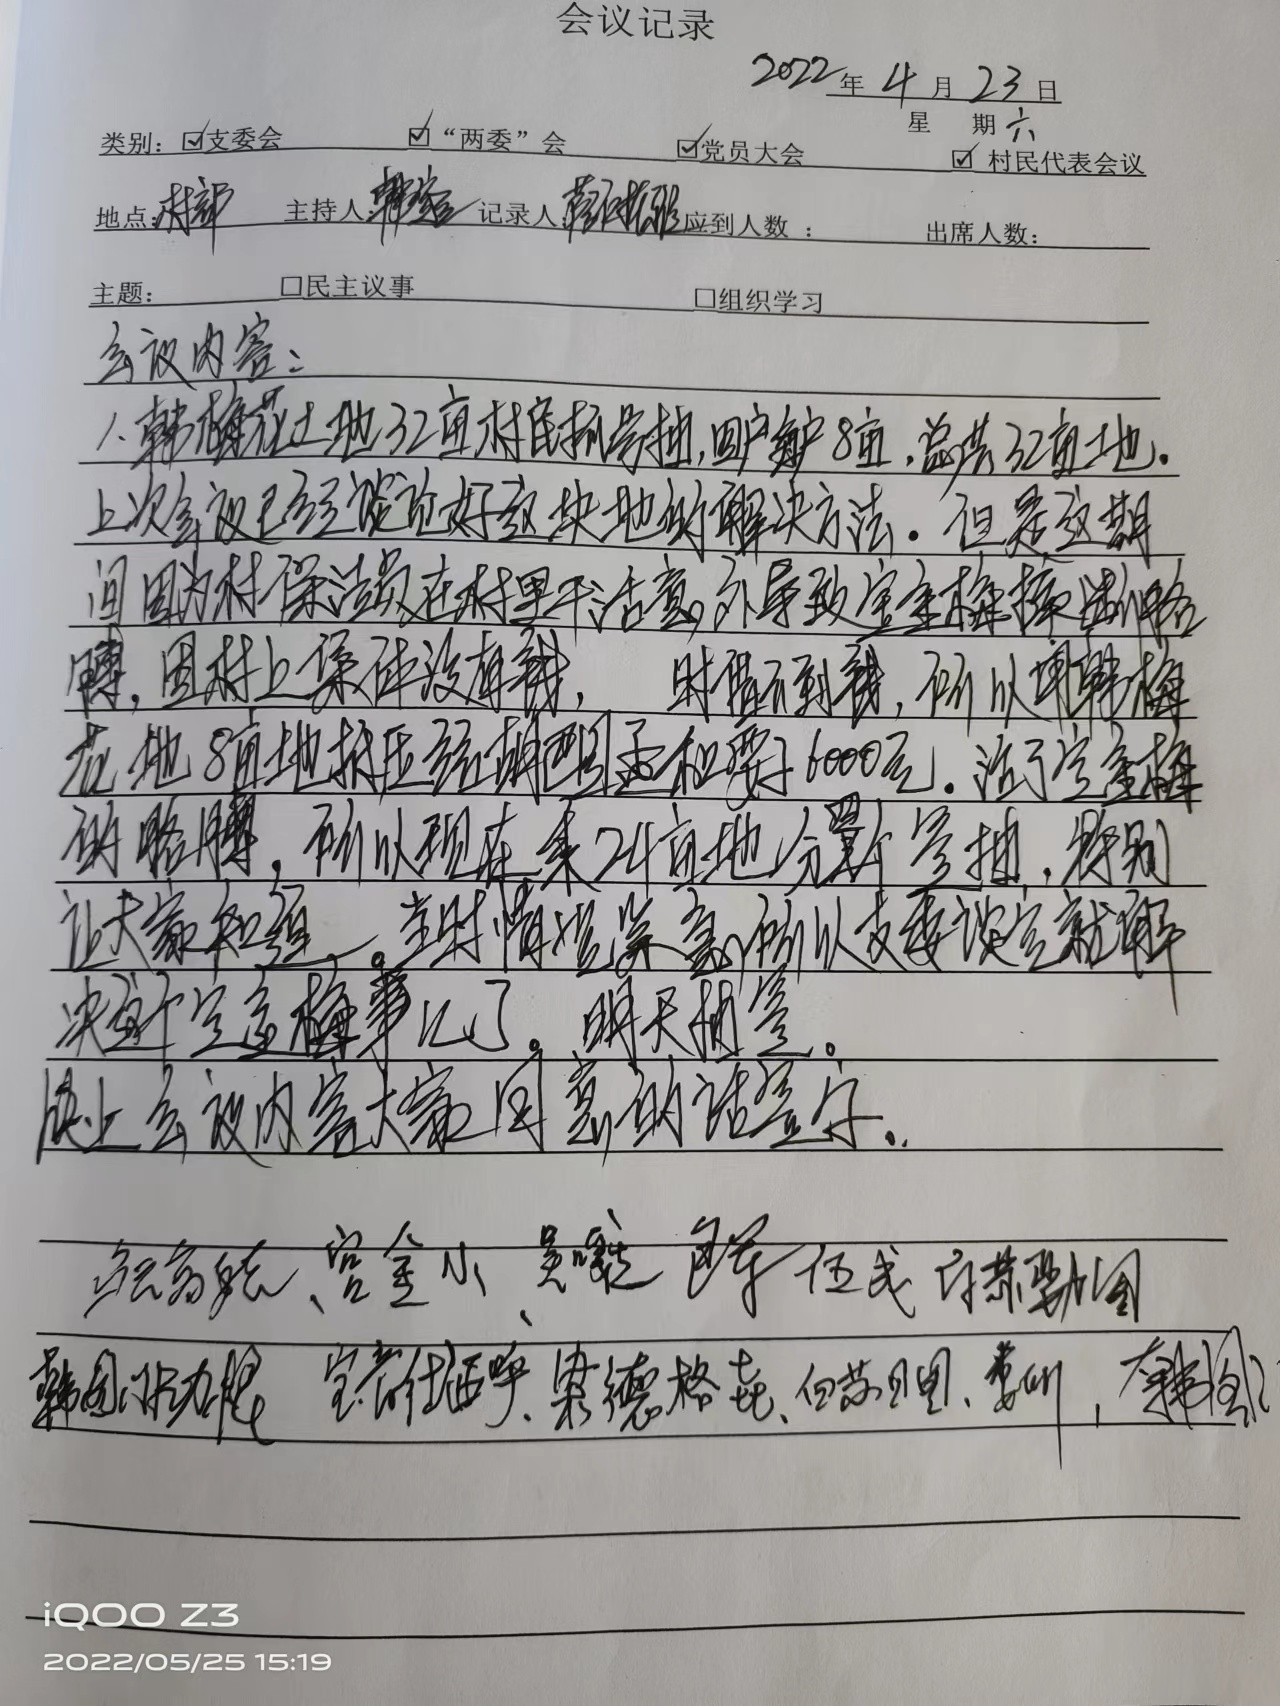 会议记录
2022年4月23日
星期六
类别：☑支委会 ☑“两委”会 ☑党员大会 ☑村民代表会议
地点：村部 主持人： 记录人： 应到人数： 出席人数：
主题： □民主议事 □组织学习
会议内容：
1、韩梅花土地32亩村民抓号抽，四户每户8亩，总共32亩土地。
上次会议已经谈论好这块地的解决方法。但是这期
间因为村保洁员在村里干活意外导致宝金梅掉进 胳
膊，因村上集体没有钱， 时借不到钱，所以用韩梅
花地8亩地抵压给 要了6000元。治了宝金梅
的胳膊，所以现在 24亩地分 签抽，特别
让大家知道。当时情况 急，所以支委谈完就解
决这个宝金梅事儿了。明天抽签。
以上会议内容大家同意的话签字。
宫金小、 伍武
宝音仕 、梁德格喜、白苏日图、
iQOO Z3
2022/05/25 15:19